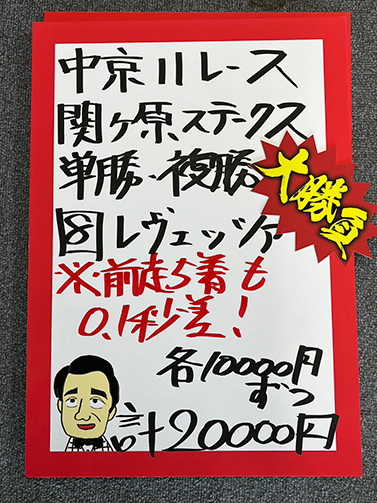 中京11レース
関ヶ原ステークス
単勝・複勝
⑧レヴェッツァ
大勝負
※前走5着も
0.1秒差!
各10000円
ずつ
計20000円